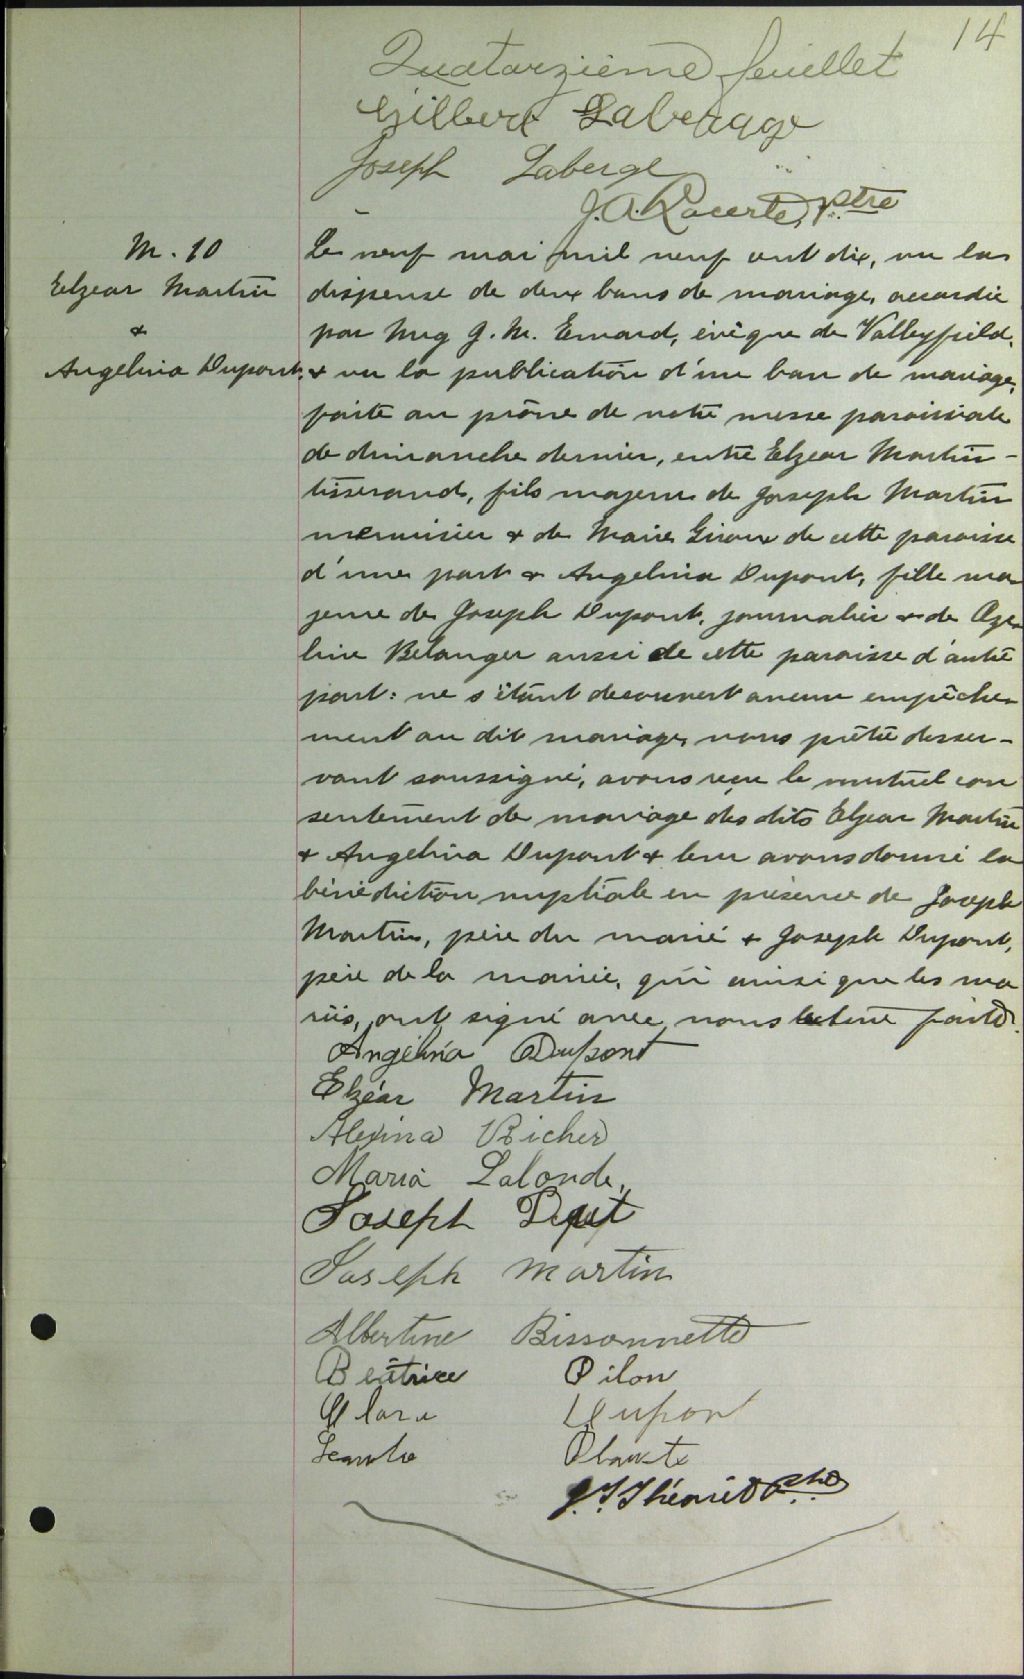 14
Quatorzième feuillet
Gilbert Laberge
Joseph Laberge
J. A. Lacerte, Ptre
M. 10
Elzear Martin
&
Angelina Dupont
Le neuf mai mil neuf cent dix, vu la
dispense de deux bans de mariage, accordée
par Mgr J. M. Emard, évêque de Valleyfield,
& vu la publication d'un ban de mariage,
faite au prône de notre messe paroissiale
de dimanche dernier, entre Elzear Martin -
tisserand, fils majeur de Joseph Martin
menuisier & de Marie Giroux de cette paroisse
d'une part & Angelina Dupont, fille ma
jeure de Joseph Dupont, journalier & de Oze
line Belanger aussi de cette paroisse d'autre
part: ne s'étant decouvert aucun empêche
ment au dit mariage, nous prêtre desser -
vant soussigné, avons reçu le mutuel con
sentement de mariage des dits Elzear Martin
& Angelina Dupont & leur avons donné la
bénédiction nuptiale en présence de Joseph
Martin, père du marié & Joseph Dupont,
père de la mariée, qui ainsi que les ma
riés, ont signé avec nous lecture faite.
Angélina Dupont
Elzéar Martin
Alexina Richer
Maria Lalonde,
Joseph
Joseph Martin
Albertine Bissonnette
Béatrice Pilon
Clara Dupont
Leandre Plante
J. Thériet Ptre